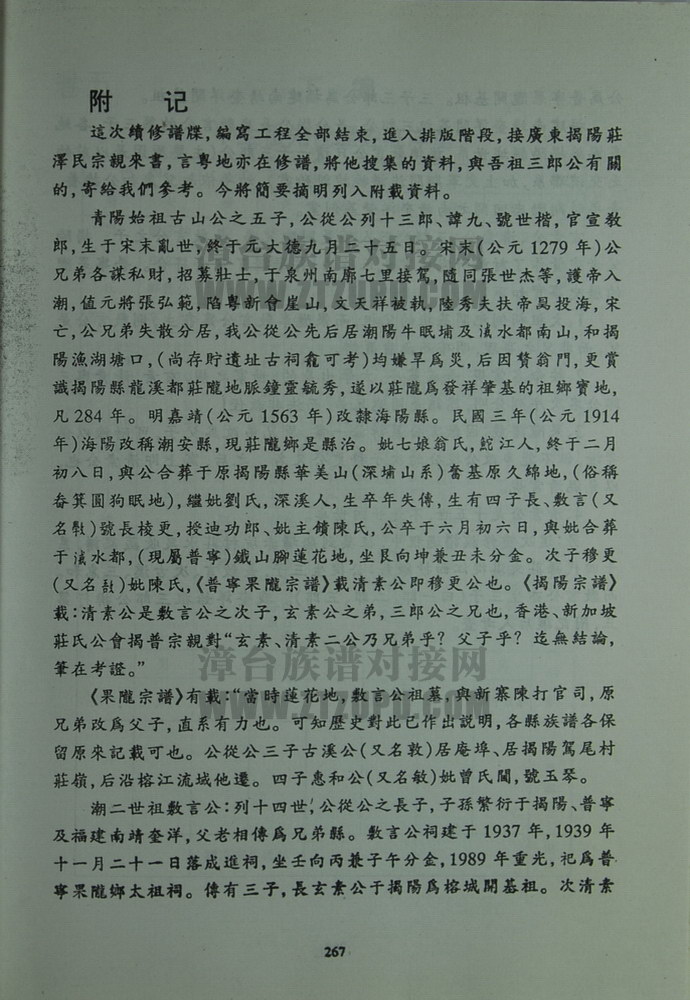 附 记
這次續修譜牒，編寫工程全部結束，進入排版階段，接廣東揭陽莊
澤民宗親來書，言粵地亦在修譜，將他搜集的資料，與吾祖三郎公有關
的，寄給我們參考。今將簡要摘明列入附載資料。
青陽始祖古山公之五子，公從公列十三郎、諱九、號世楷，官宣教
郎，生于宋末亂世，終于元大德九月二十五日。宋末（公元 1279 年）公
兄弟各謀私財，招募壯士，于泉州南廓七里接駕，隨同張世杰等，護帝入
潮，值元將張弘範，陷粵新會崖山，文天祥被執，陸秀夫扶帝昺投海，宋
亡，公兄弟失散分居，我公從公先后居潮陽牛眠埔及 水都南山，和揭
陽漁湖塘口，（尚存貯遺址古祠龕可考）均嫌旱爲災，后因贅翁門，更賞
識揭陽縣龍溪都莊隴地脈鐘靈毓秀，遂以莊隴爲發祥肇基的祖鄉寶地，
凡 284 年。明嘉靖（公元 1563 年）改隸海陽縣。民國三年（公元 1914
年）海陽改稱潮安縣，現莊隴鄉是縣治。妣七娘翁氏，鮀江人，終于二月
初八日，與公合葬于原揭陽縣華美山（深埔山系）奮基原久綿地，（俗稱
畚箕圓狗眠地），繼妣劉氏，深溪人，生卒年失傳，生有四子長、敷言（又
名 ）號長棱更，授迪功郎、妣主饋陳氏，公卒于六月初六日，與妣合葬
于 水都，（現屬普寧）鐵山腳蓮花地，坐艮向坤兼丑未分金。次子穆更
（又名 ）妣陳氏，《普寧果隴宗譜》載清素公即穆更公也。《揭陽宗譜》
載：清素公是敷言公之次子，玄素公之弟，三郎公之兄也，香港、新加坡
莊氏公會揭普宗親對“玄素、清素二公乃兄弟乎？父子乎？迄無結論，
筆在考證。”
《果隴宗譜》有載：“當時蓮花地，敷言公祖墓，與新寨陳打官司，原
兄弟改爲父子，直系有力也。可知歷史對此已作出説明，各縣族譜各保
留原來記載可也。公從公三子古溪公（又名敦）居庵埠、居揭陽駕尾村
莊嶺，后沿榕江流域他遷。四子惠和公（又名敏）妣曾氏閫，號玉琴。
潮二世祖敷言公：列十四世，公從公之長子，子孫繁衍于揭陽、普寧
及福建南靖奎洋，父老相傳爲兄弟縣。敷言公祠建于 1937 年，1939 年
十一月二十一日落成進祠，坐壬向丙兼子午分金，1989 年重光，祀爲普
寧果隴鄉太祖祠。傳有三子，長玄素公于揭陽爲榕城開基祖。次清素
267
漳台族谱对接网
漳台族谱对接网